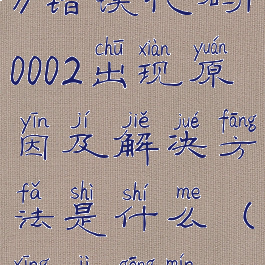 错误代码
0002出现原
chū xiàn yuán
因及解决方
yīn jí jiě jué fāng
法是什么（
fǎ shì shí me